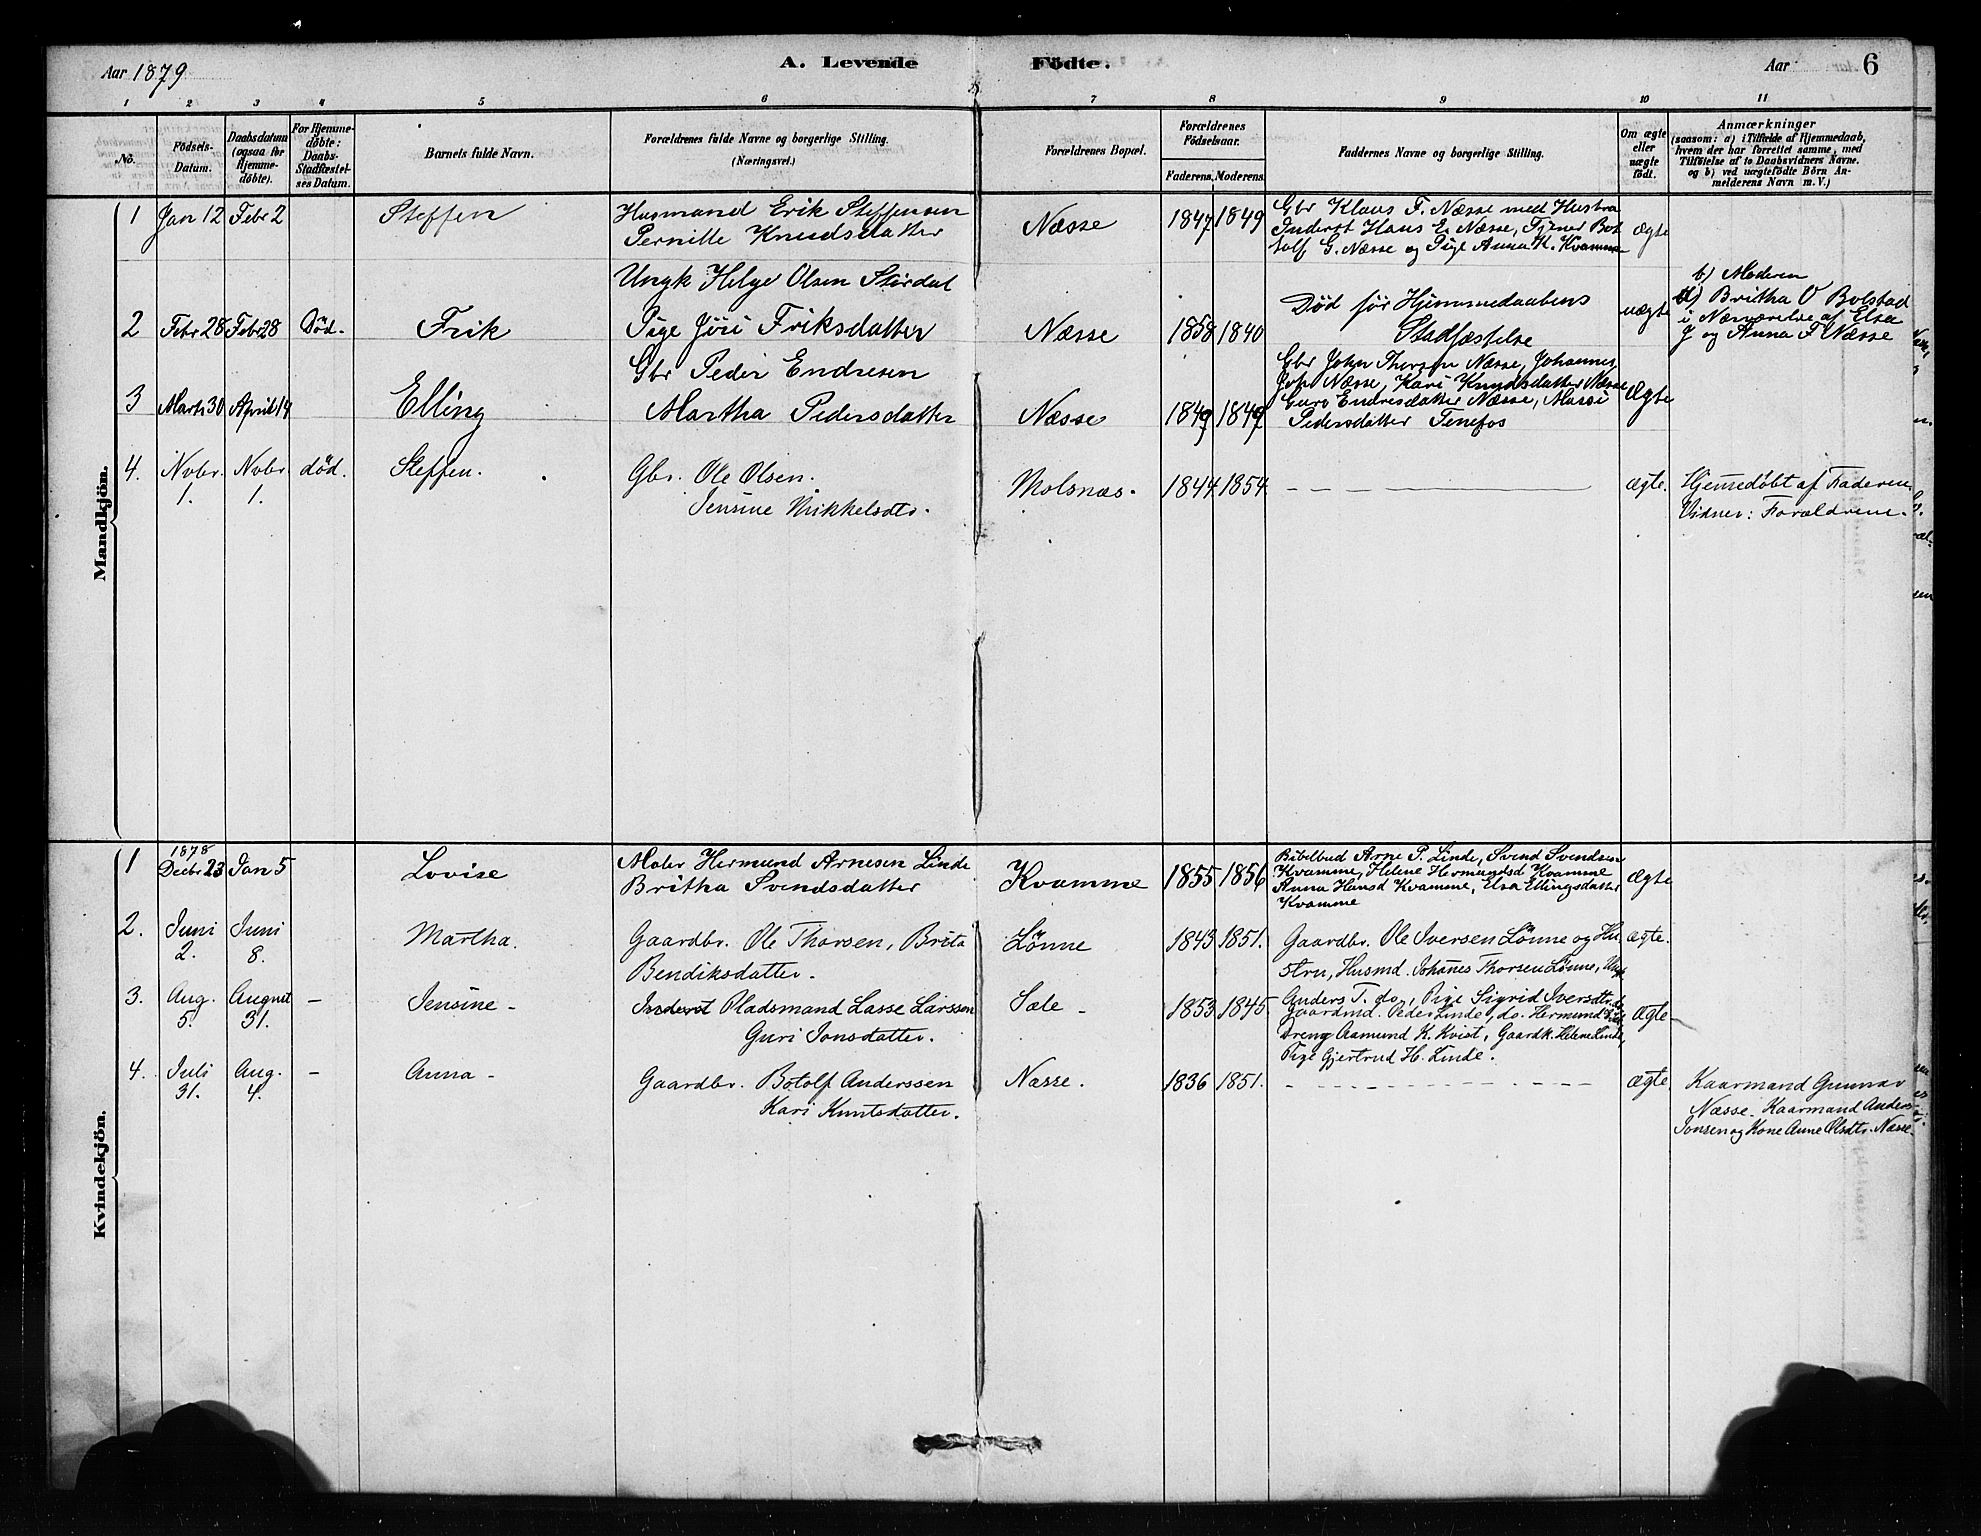 Aar 1879
A. Levende Födte.
Aar 6
1 2 3 4 5 6 7 8 9 10 11
No.
Födsels-
Datum.
Daabsdatum
(ogsaa for
Hjemme-
döbte).
For Hjemme-
döbte:
Daabs-
Stadfæstel-
ses Datum.
Barnets fulde Navn.
Forældrenes fulde Navne og borgerlige Stilling.
(Næringsvei.)
Forældrenes Bopæl.
Forældrenes
Födselsaar.
Faderens. Moderens.
Faddernes Navne og borgerlige Stilling.
Om ægte
eller
uægte
födt.
Anmærkninger
(saasom: a) i Tilfælde af Hjemmedaab,
hvem der har forrettet samme, med
Tilföielse af to Daabsvidners Navne.
og b) ved uægtefödte Börn An-
melderens Navn m. V.)
Mandkjön.
1 Jan 12 Febr 2 Steffen
Husmand Erik Steffensen
Pernille Knudsdatter
Næsse 1847 1849
Gbr Klaus F. Næsse med Hustru
Inderst Hans E. Næsse, Tjener Bot
tolf G. Næsse og Pige Anna K. Kvamme
ægte
2 Febr 28 Febr 28 Död. Erik
Ungk Helge Olsen Stördal
Pige Jöri Eriksdatter
Næsse 1858 1840
Död för Hjemmedaabens
Stadfæstelse
uægte
b) Moderen
a) Britha O Bolstad
i Nærværelse af Elsa
J og Anna F Næsse
3 Marts 30 April 14 Elling
Gbr Peder Endresen
Martha Pedersdatter
Næsse 1849 1849
Gbr John Thorsen Næsse, Johannes
Joh Næsse, Kari Knudsdatter Næsse
Guro Endresdatter Næsse, Massi
Pedersdatter Tenefos
Ægte
4. Novbr. 1. Novbr. 1. död. Steffen.
Gbr. Ole Olsen.
Jensine Mikkelsdtr.
Molsnæs. 1844. 1854.
ægte.
Hjemedöbt af Faderen.
Vidner: Forældrene.
Kvindekjön.
1 1878 Decbr 23 Jan 5 Lovise
Maler Hermund Arnesen Linde
Britha Svendsdatter
Kvamme 1855 1856
Bibelbud Arne P. Linde, Svend Svendsen
Kvamme, Helene Hermundsd Kvamme
Anna Hansd Kvamme, Elsa Ellingsdatter
Kvamme
Ægte
2. Juni 2. Juni 8. Martha.
Gaardbr. Ole Thorsen, Brita
Bendiksdatter.
Lönne 1843 1851.
Gaardbr. Ole Iversen Lönne og Hu
stru, Husmd. Johanes Thorsen Lönne, Ungk
Anders T. do, Pige Sigrid Iversdtr do
Ægte.
3. Aug. 5. August 31. – Jensine –
Inderst Pladsmand Lasse Larssen
Guri Jonsdatter.
Sæle – 1853 1845.
Gaardmd. Peder Linde, do. Hermund Linde
Dreng Aamund K. Kvist, Gaardk. Helene Linde,
Pige Gjertrud H. Linde.
Ægte –
4. Juli 31. Aug. 4. – Anna –
Gaardbr. Botolf Anderssen
Kari Knutsdatter.
Næsse. 1836 1851.
ægte.
Kaarmand Gunnar
Næsse. Kaarmand Anders
Jonsen og Kone Anne Olsdtr. Næsse.